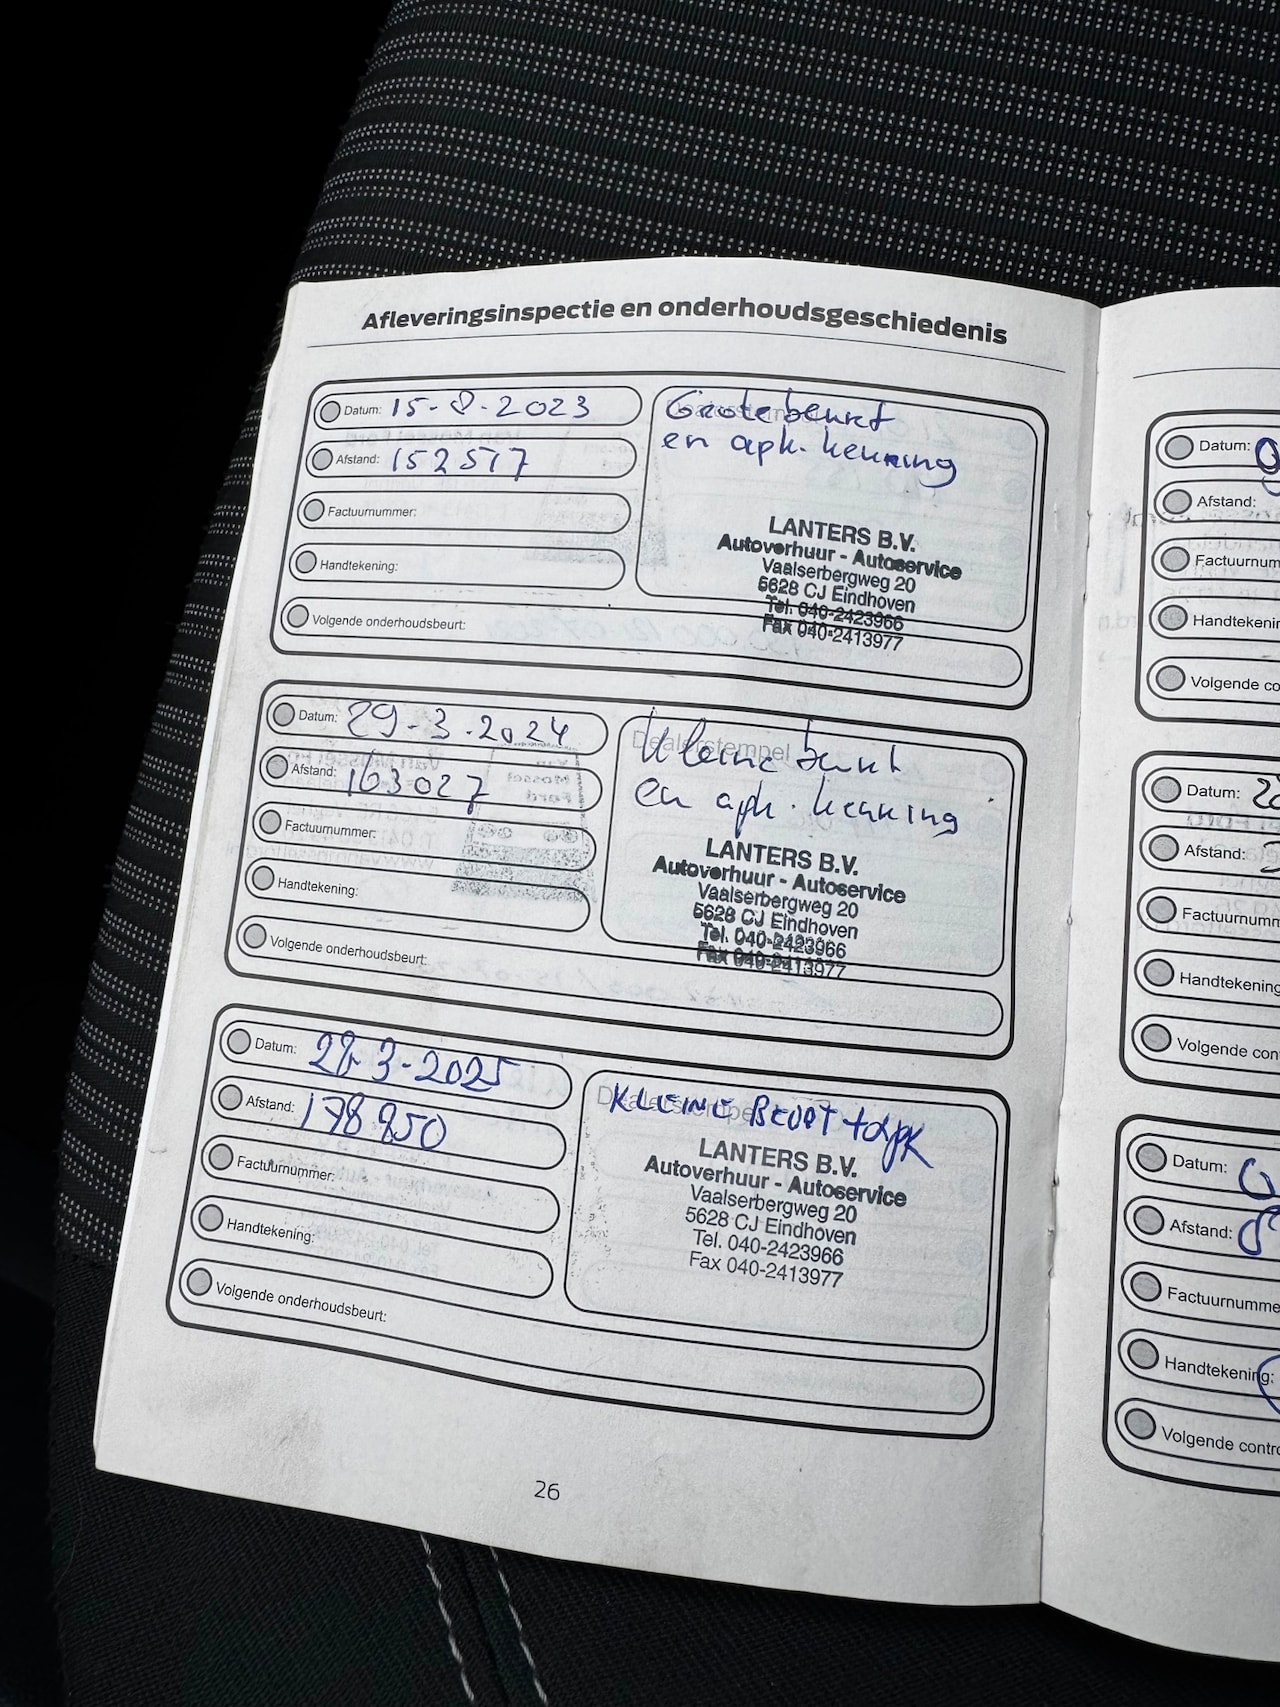 Afleveringsinspectie en onderhoudsgeschiedenis
Datum: 15-8-2023
Afstand: 152517
Factuurnummer:
Handtekening:
Volgende onderhoudsbeurt:
Grote beurt
en apk. keuring
LANTERS B.V.
Autoverhuur - Autoservice
Vaalserbergweg 20
5628 CJ Eindhoven
Tel. 040-2423966
Fax 040-2413977
Datum: 29-3-2024
Afstand: 163027
Factuurnummer:
Handtekening:
Volgende onderhoudsbeurt:
Dealerstempel
Kleine beurt
en apk. keuring
LANTERS B.V.
Autoverhuur - Autoservice
Vaalserbergweg 20
5628 CJ Eindhoven
Tel. 040-2423966
Fax 040-2413977
Datum: 28-3-2025
Afstand: 178850
Factuurnummer:
Handtekening:
Volgende onderhoudsbeurt:
Dealerstempel
KLEINE BEURT + apk
LANTERS B.V.
Autoverhuur - Autoservice
Vaalserbergweg 20
5628 CJ Eindhoven
Tel. 040-2423966
Fax 040-2413977
26
Datum:
Afstand:
Factuurnum
Handtekenin
Volgende co
Datum:
Afstand:
Factuurnumm
Handtekening
Volgende con
Datum:
Afstand:
Factuurnumme
Handtekening:
Volgende contro